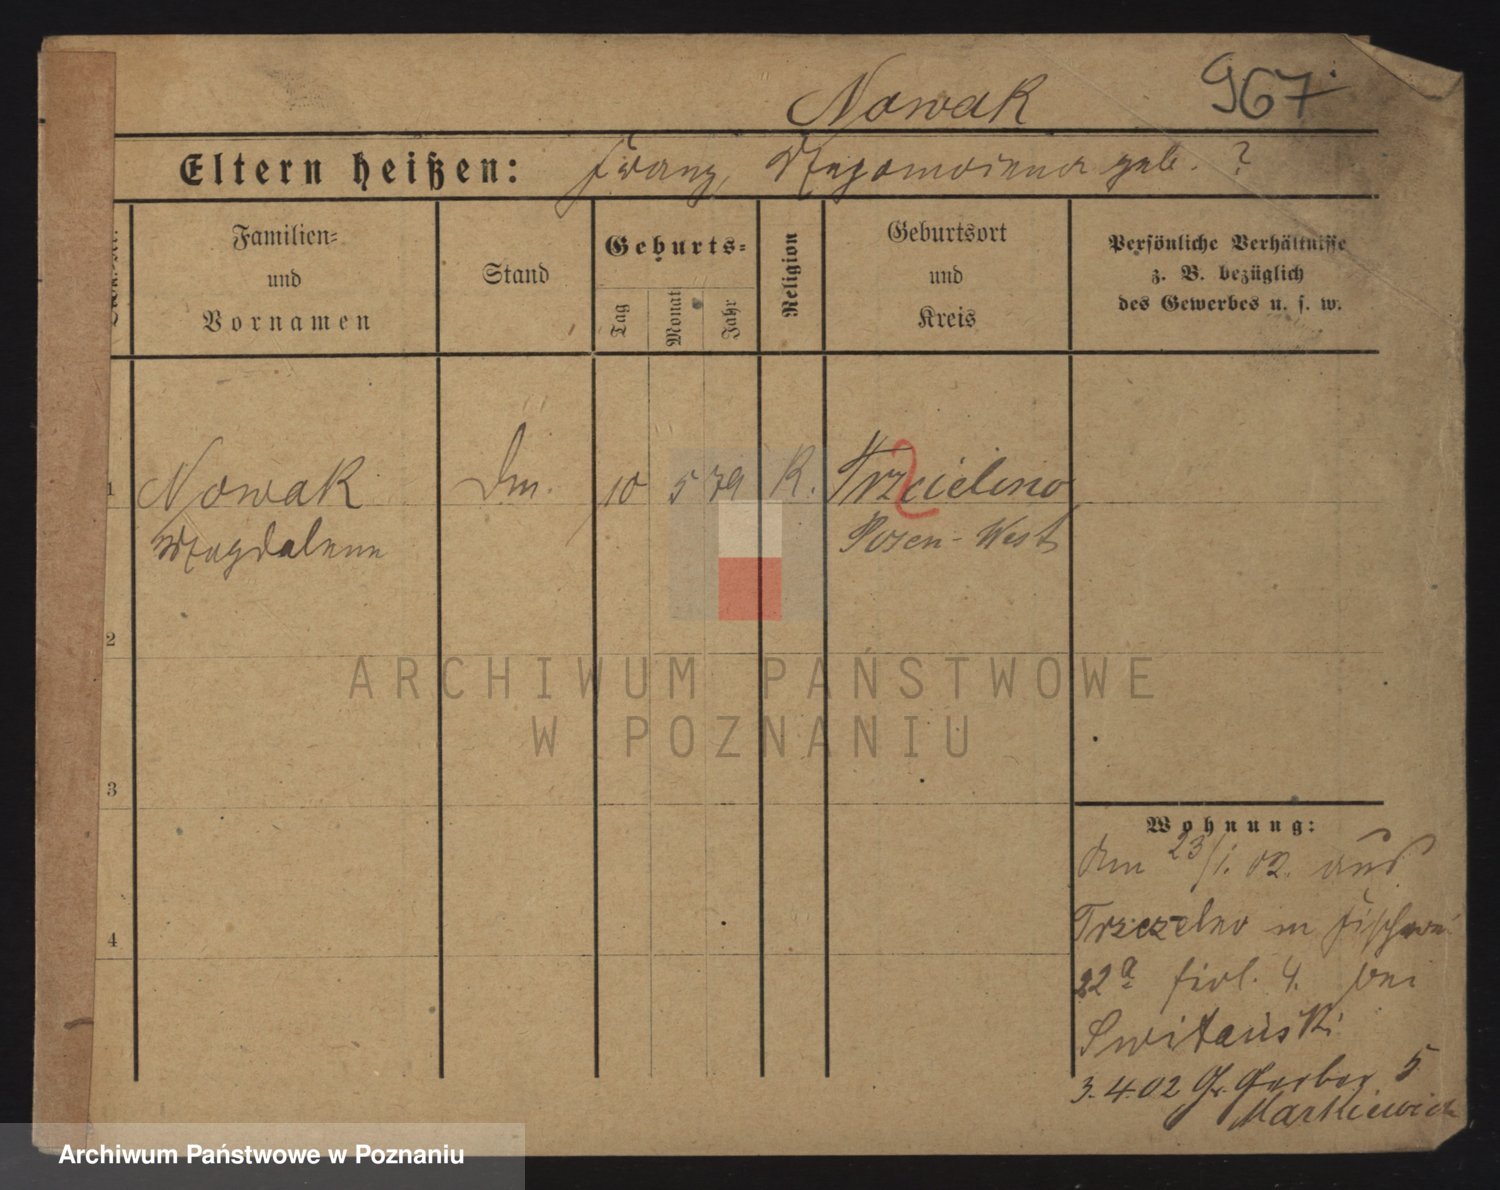 Nowak 967.
Eltern heißen: Franz, geb. ?
Familien= und Vornamen
Stand
Geburts=
Tag
Monat
Jahr
Religion
Geburtsort und Kreis
Persönliche Verhältnisse z. B. bezüglich des Gewerbes u. s. w.
1 Nowak 10 5 79 K. Trzcielino
Magdalena Posen-West
2
ARCHIWUM PAŃSTWOWE
W POZNANIU
3
Wohnung:
23/1. 02. aus
22a bei
4
3.4.02 Gr. Gerber 5
Archiwum Państwowe w Poznaniu